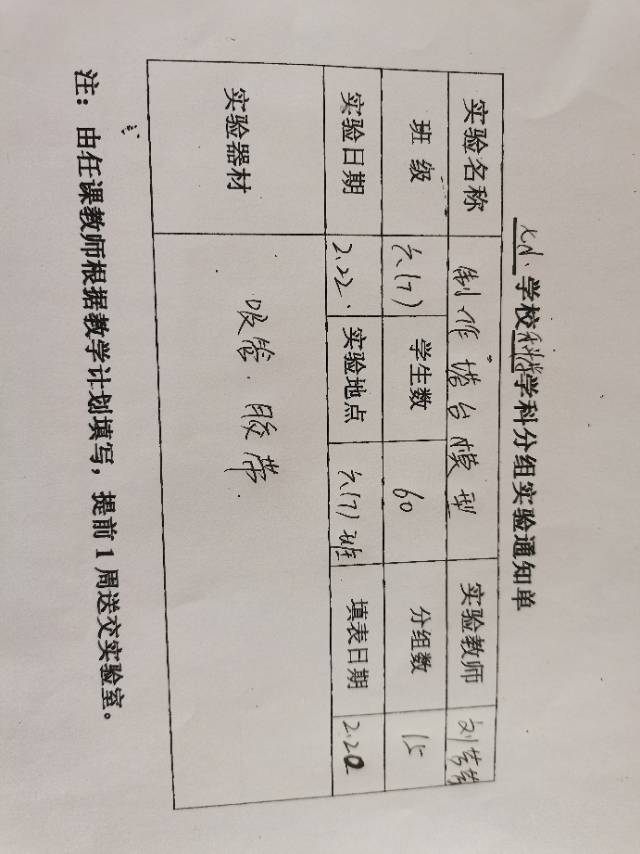 学校科学学科分组实验通知单
实验名称 制作塔台模型 实验教师 刘
班级 六(7) 学生数 60 分组数 15
实验日期 2.22. 实验地点 六(7)班 填表日期 2.20
实验器材 吸管.胶带.
注：由任课教师根据教学计划填写，提前1周送交实验室。